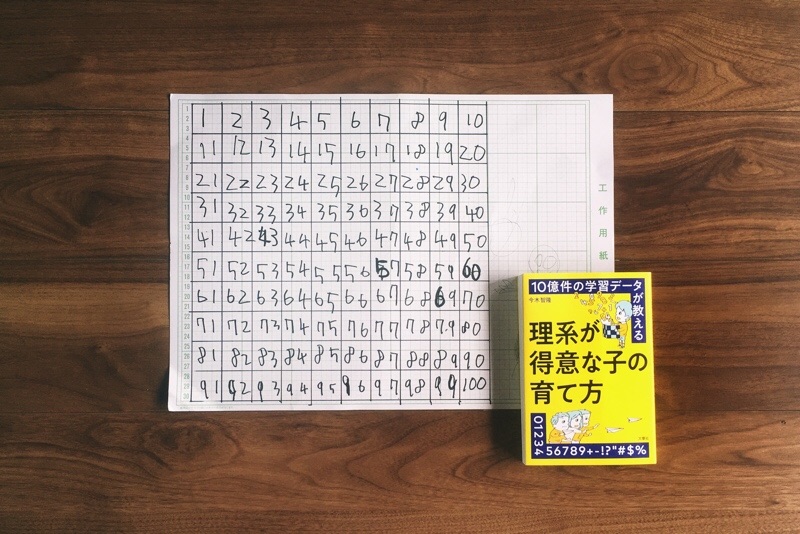 1 2 3 4 5 6 7 8 9 10
11 12 13 14 15 16 17 18 19 20
21 22 23 24 25 26 27 28 29 30
31 32 33 34 35 36 37 38 39 40
41 42 43 44 45 46 47 48 49 50
51 52 53 54 55 56 57 58 59 60
61 62 63 64 65 66 67 68 69 70
71 72 73 74 75 76 77 78 79 80
81 82 83 84 85 86 87 88 89 90
91 92 93 94 95 96 97 98 99 100
工作用紙
10億件の学習データが教える
今木智隆
理系が
得意な子の
育て方
01234
56789+-!?"#$%